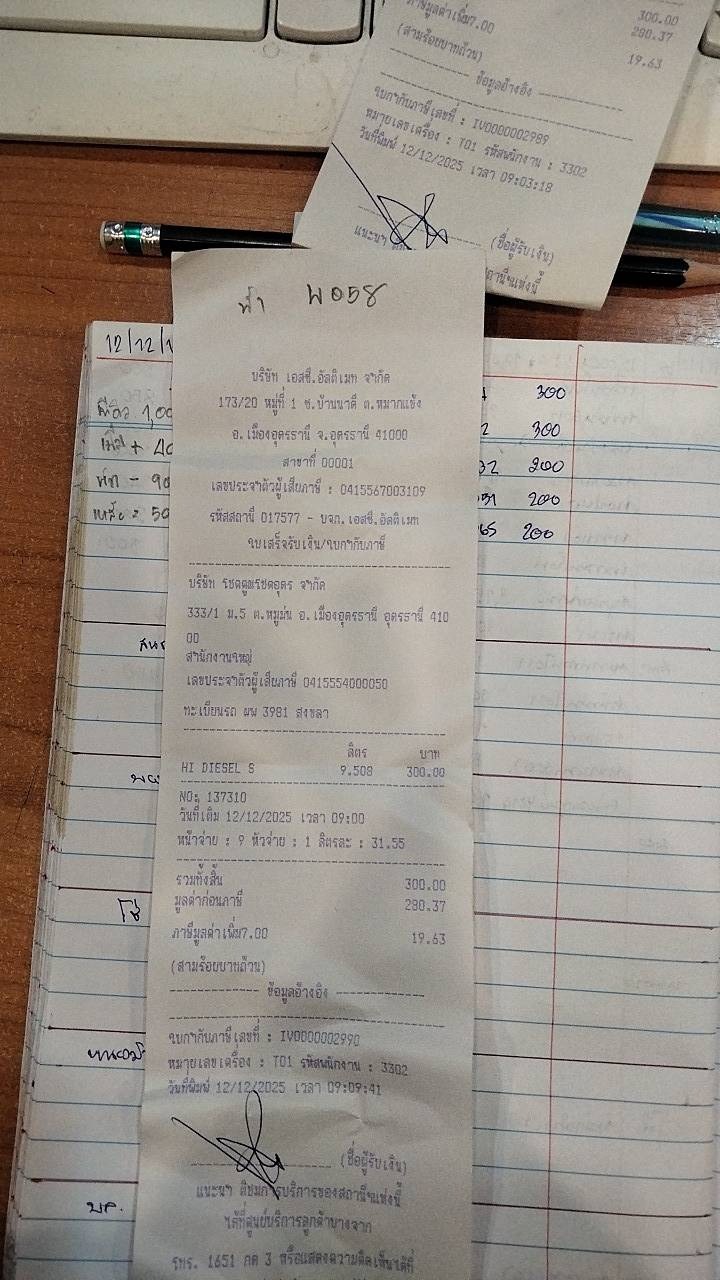 ภาษีมูลค่าเพิ่ม7.00
300.00
280.37
(สามร้อยบาทถ้วน)
19.63
ข้อมูลอ้างอิง
ใบกำกับภาษีเลขที่ : IV0000002989
หมายเลขเครื่อง : T01 รหัสพนักงาน : 3302
วันที่พิมพ์ 12/12/2025 เวลา 09:03:18
(ชื่อผู้รับเงิน)
แนะนำ
สถานีฯแห่งนี้
ฟ้า พ058
บริษัท เอสซี.อัลติเมท จำกัด
173/20 หมู่ที่ 1 ซ.บ้านนาดี ต.หมากแข้ง
อ.เมืองอุดรธานี จ.อุดรธานี 41000
สาขาที่ 00001
เลขประจำตัวผู้เสียภาษี : 0415567003109
รหัสสถานี 017577 - บจก.เอสซี.อัลติเมท
ใบเสร็จรับเงิน/ใบกำกับภาษี
บริษัท รชตคูณรชตอุดร จำกัด
333/1 ม.5 ต.หมูม่น อ.เมืองอุดรธานี อุดรธานี 410
00
สำนักงานใหญ่
เลขประจำตัวผู้เสียภาษี 0415554000050
ทะเบียนรถ ผพ 3981 สงขลา
ลิตร บาท
HI DIESEL S 9.508 300.00
NO: 137310
วันที่เติม 12/12/2025 เวลา 09:00
หน้าจ่าย : 9 หัวจ่าย : 1 ลิตรละ : 31.55
รวมทั้งสิ้น 300.00
มูลค่าก่อนภาษี 280.37
ภาษีมูลค่าเพิ่ม7.00 19.63
(สามร้อยบาทถ้วน)
ข้อมูลอ้างอิง
ใบกำกับภาษีเลขที่ : IV0000002990
หมายเลขเครื่อง : T01 รหัสพนักงาน : 3302
วันที่พิมพ์ 12/12/2025 เวลา 09:09:41
(ชื่อผู้รับเงิน)
แนะนำ ติชมการบริการของสถานีฯแห่งนี้
ได้ที่ศูนย์บริการลูกค้าบางจาก
โทร. 1651 กด 3 หรือแสดงความคิดเห็นได้ที่
12/12/
300
300
200
200
200